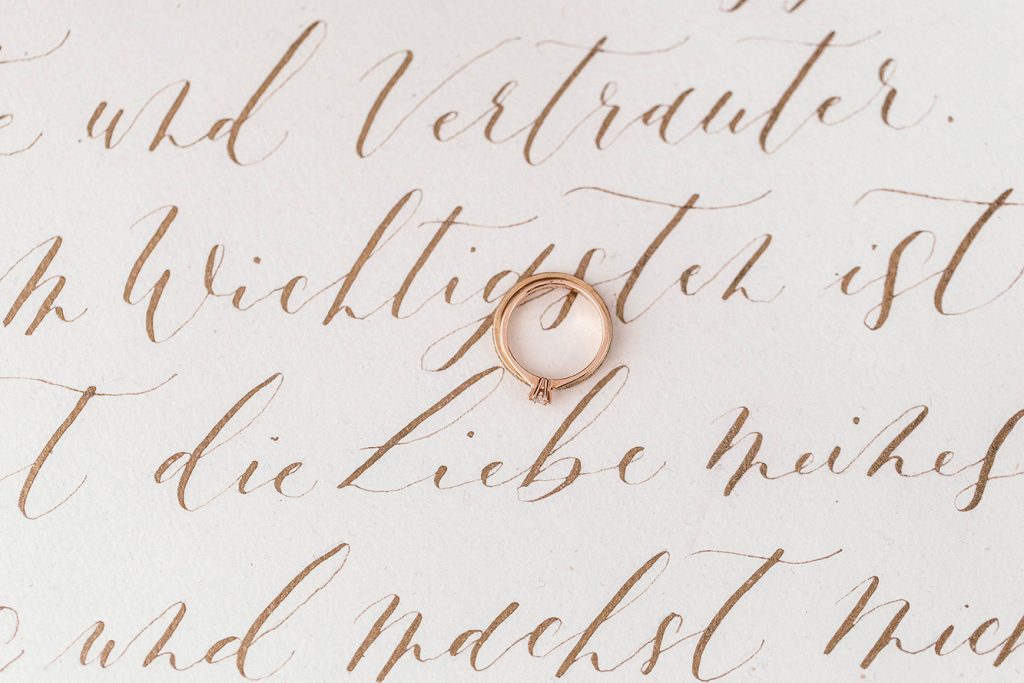 und Vertrauter.
Wichtigsten ist
die Liebe meines
und machst mich